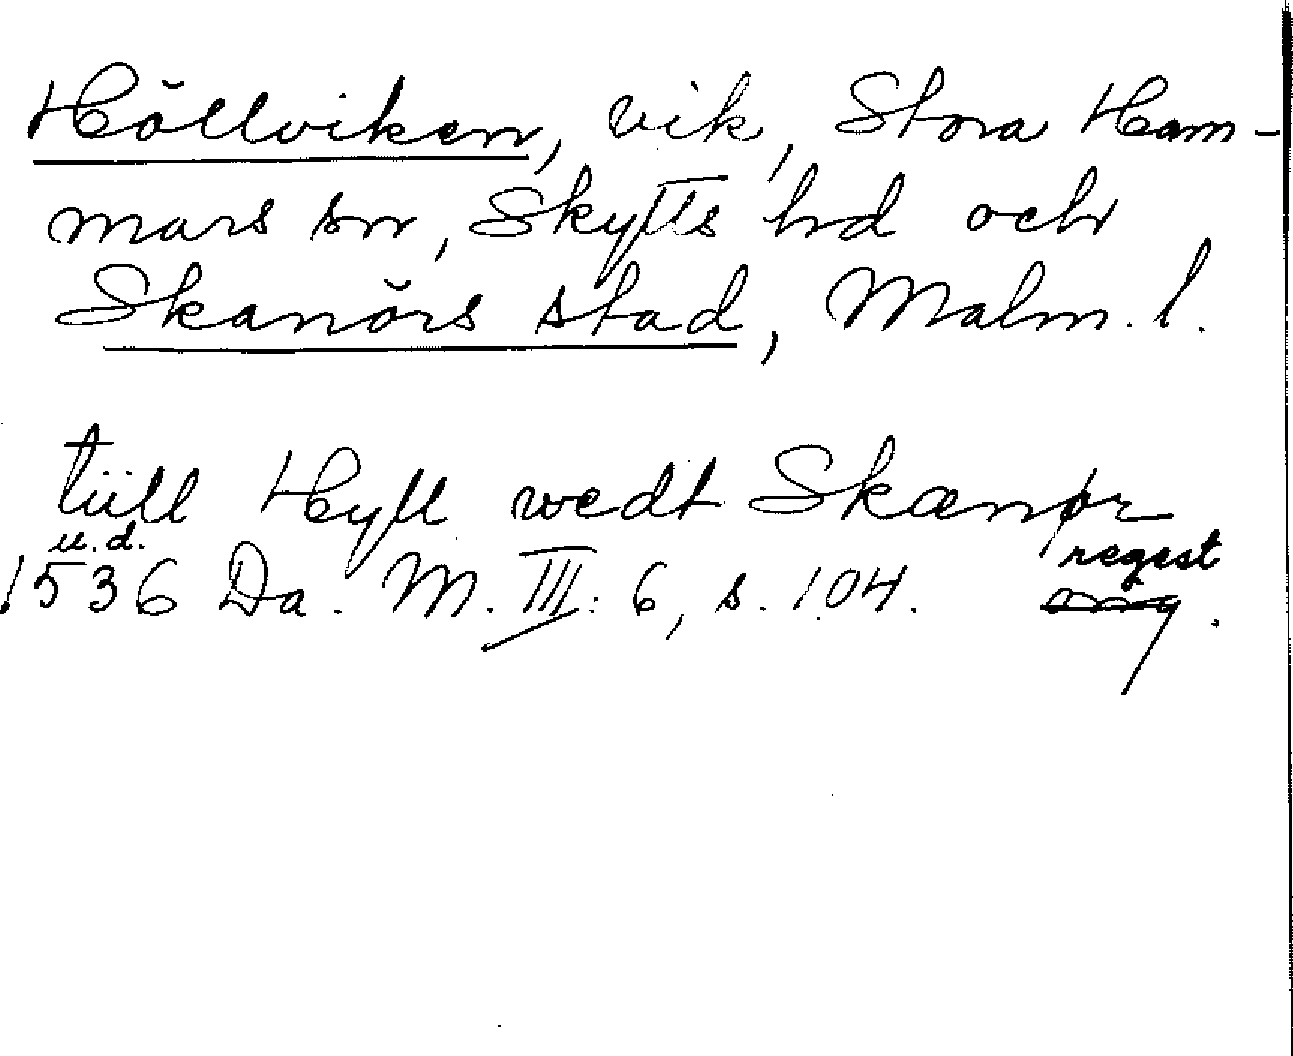 Höllviken, vik, Stora Ham-
mars sn, Skytts hd och
Skanörs stad, Malm. l.
tiill Hyll wedt Skanør
u. d.
1536 Da. M. III: 6, s. 104. regest